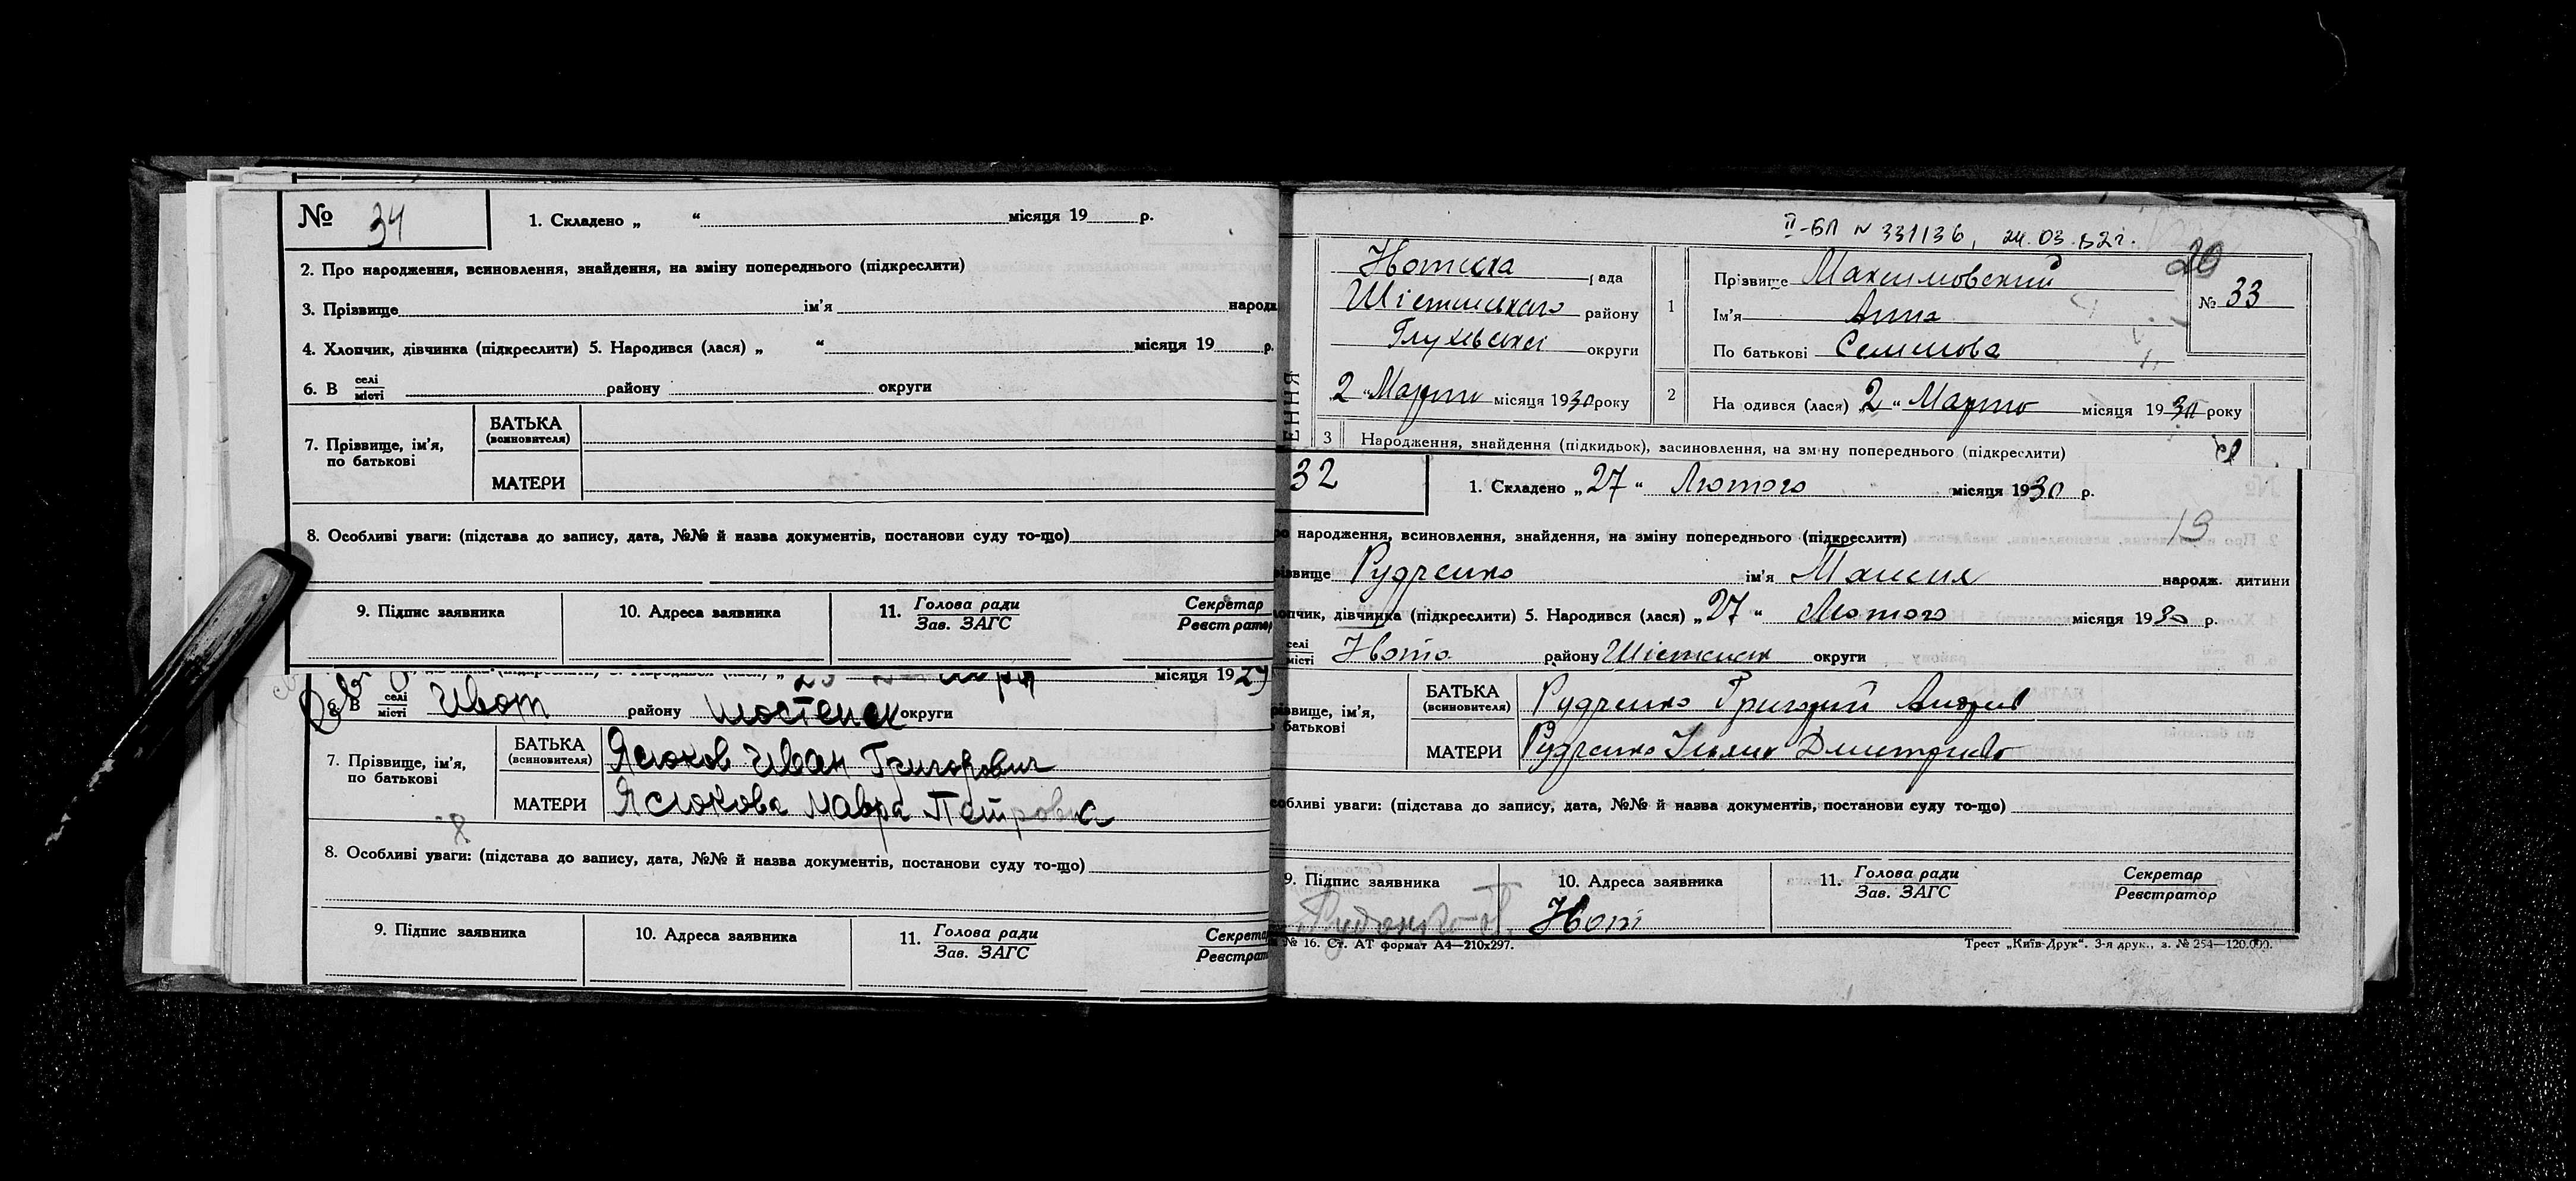 № 34
1. Складено „ “ місяця 19 р.
2. Про народження, всиновлення, знайдення, на зміну попереднього (підкреслити)
3. Прізвище ім'я народж
4. Хлопчик, дівчинка (підкреслити) 5. Народився (лася) „ “ місяця 19 р.
6. В селі місті району округи
7. Прізвище, ім'я, по батькові
БАТЬКА (всиновителя)
МАТЕРИ
8. Особливі уваги: (підстава до запису, дата, №№ й назва документів, постанови суду то-що)
9. Підпис заявника 10. Адреса заявника 11. Голова ради Зав. ЗАГС Секретар Реєстратор
місяця 1929
6. В селі місті Ивот району шостенск округи
7. Прізвище, ім'я, по батькові
БАТЬКА (всиновителя) Яслюков Иван Григорович
МАТЕРИ Яслюкова Мавра Петровна
8. Особливі уваги: (підстава до запису, дата, №№ й назва документів, постанови суду то-що)
9. Підпис заявника 10. Адреса заявника 11. Голова ради Зав. ЗАГС Секретар Реєстрат
II-БП № 331136, 24.03.82г.
20
рада
району
округи
2 „ Марта місяця 1930 року
1
Прізвище Максимовский
Ім'я Анна
По батькові Семенова
№ 33
2
На одився (лася) 2 „ Марта місяця 1930 року
ЕННЯ
3 Народження, знайдення (підкидьок), засиновлення, на зміну попереднього (підкреслити)
32
1. Складено „27“ Лютого місяця 1930 р.
19
народження, всиновлення, знайдення, на зміну попереднього (підкреслити)
ізвище Рудченко ім'я народж. дитини
опчик, дівчинка (підкреслити) 5. Народився (лася) „27“ Лютого місяця 1930 р.
селі місті Ивот району округи
ізвище, ім'я, батькові
БАТЬКА (всиновителя) Рудченко Григорий Андрев
МАТЕРИ Рудченко Дмитрив
обливі уваги: (підстава до запису, дата, №№ й назва документів, постанови суду то-що)
9. Підпис заявника 10. Адреса заявника 11. Голова ради Зав. ЗАГС Секретар Реєстратор
Ивот
№ 16. Ст. АТ формат А4—210х297.
Трест „Київ-Друк“. 3-я друк., з. № 254—120.000.